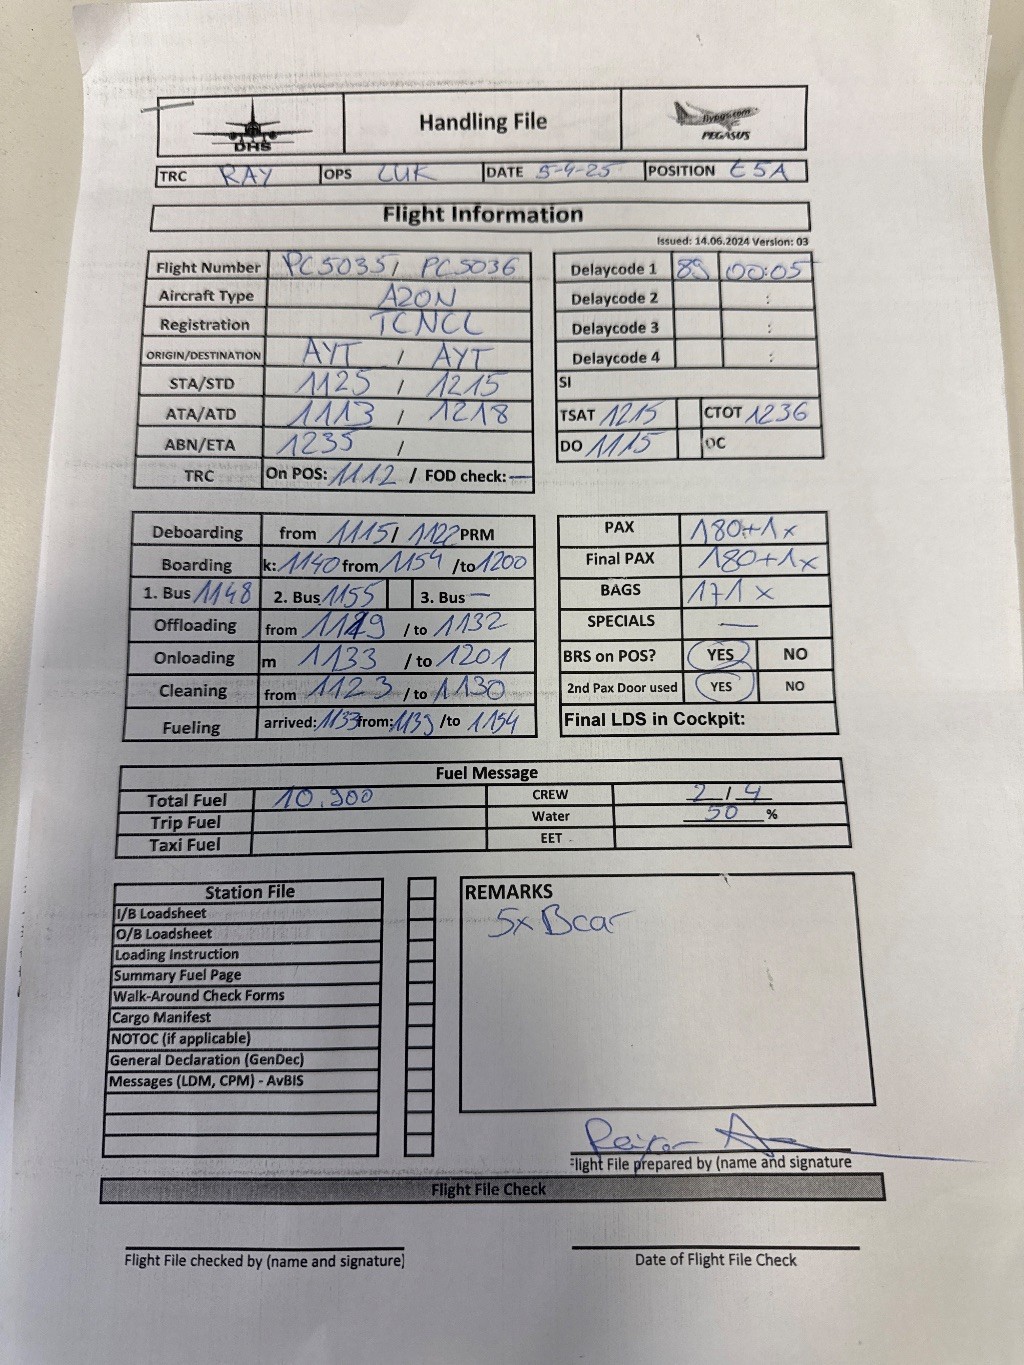 DHS
Handling File
flypgs.com
PEGASUS
TRC RAY OPS LUK DATE 5-4-25 POSITION E5A
Flight Information
Issued: 14.06.2024 Version: 03
Flight Number PC5035 / PC5036
Aircraft Type A20N
Registration TCNCL
ORIGIN/DESTINATION AYT / AYT
STA/STD 1125 / 1215
ATA/ATD 1113 / 1218
ABN/ETA 1235 /
TRC On POS: 1112 / FOD check: —
Delaycode 1 89 00:05
Delaycode 2 :
Delaycode 3 :
Delaycode 4 :
SI
TSAT 1215 CTOT 1236
DO 1115 OC
Deboarding from 1115 / 1122 PRM
Boarding k: 1140 from 1154 /to 1200
1. Bus 1148 2. Bus 1155 3. Bus —
Offloading from /to 1132
Onloading m 1133 /to 1201
Cleaning from 1123 /to 1130
Fueling arrived: 1133 from: 1139 /to 1154
PAX 180+1x
Final PAX 180+1x
BAGS 171x
SPECIALS —
BRS on POS? YES NO
2nd Pax Door used YES NO
Final LDS in Cockpit:
Fuel Message
Total Fuel 10.900 CREW 2 / 4
Trip Fuel Water 50 %
Taxi Fuel EET
Station File
I/B Loadsheet
O/B Loadsheet
Loading Instruction
Summary Fuel Page
Walk-Around Check Forms
Cargo Manifest
NOTOC (if applicable)
General Declaration (GenDec)
Messages (LDM, CPM) - AvBIS
REMARKS
5x Bcar
Flight File prepared by (name and signature
Flight File Check
Flight File checked by (name and signature)
Date of Flight File Check